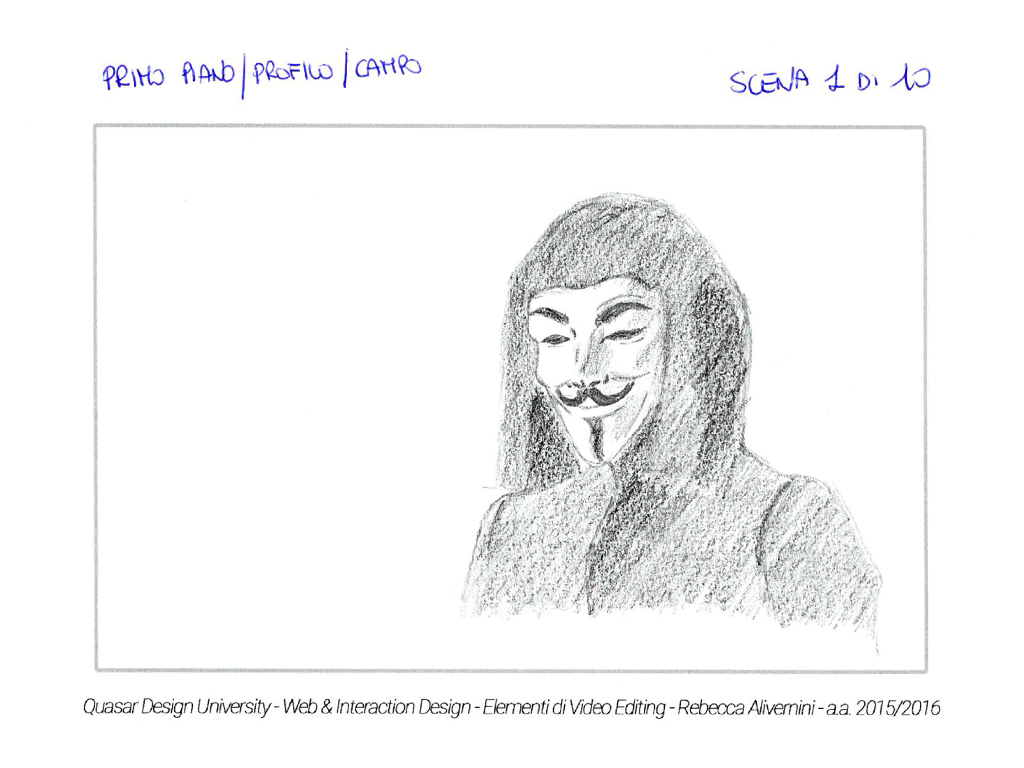 PRIMO PIANO/PROFILO/CAMPO
SCENA 1 DI 10
Quasar Design University - Web & Interaction Design - Elementi di Video Editing - Rebecca Alivernini - a.a. 2015/2016